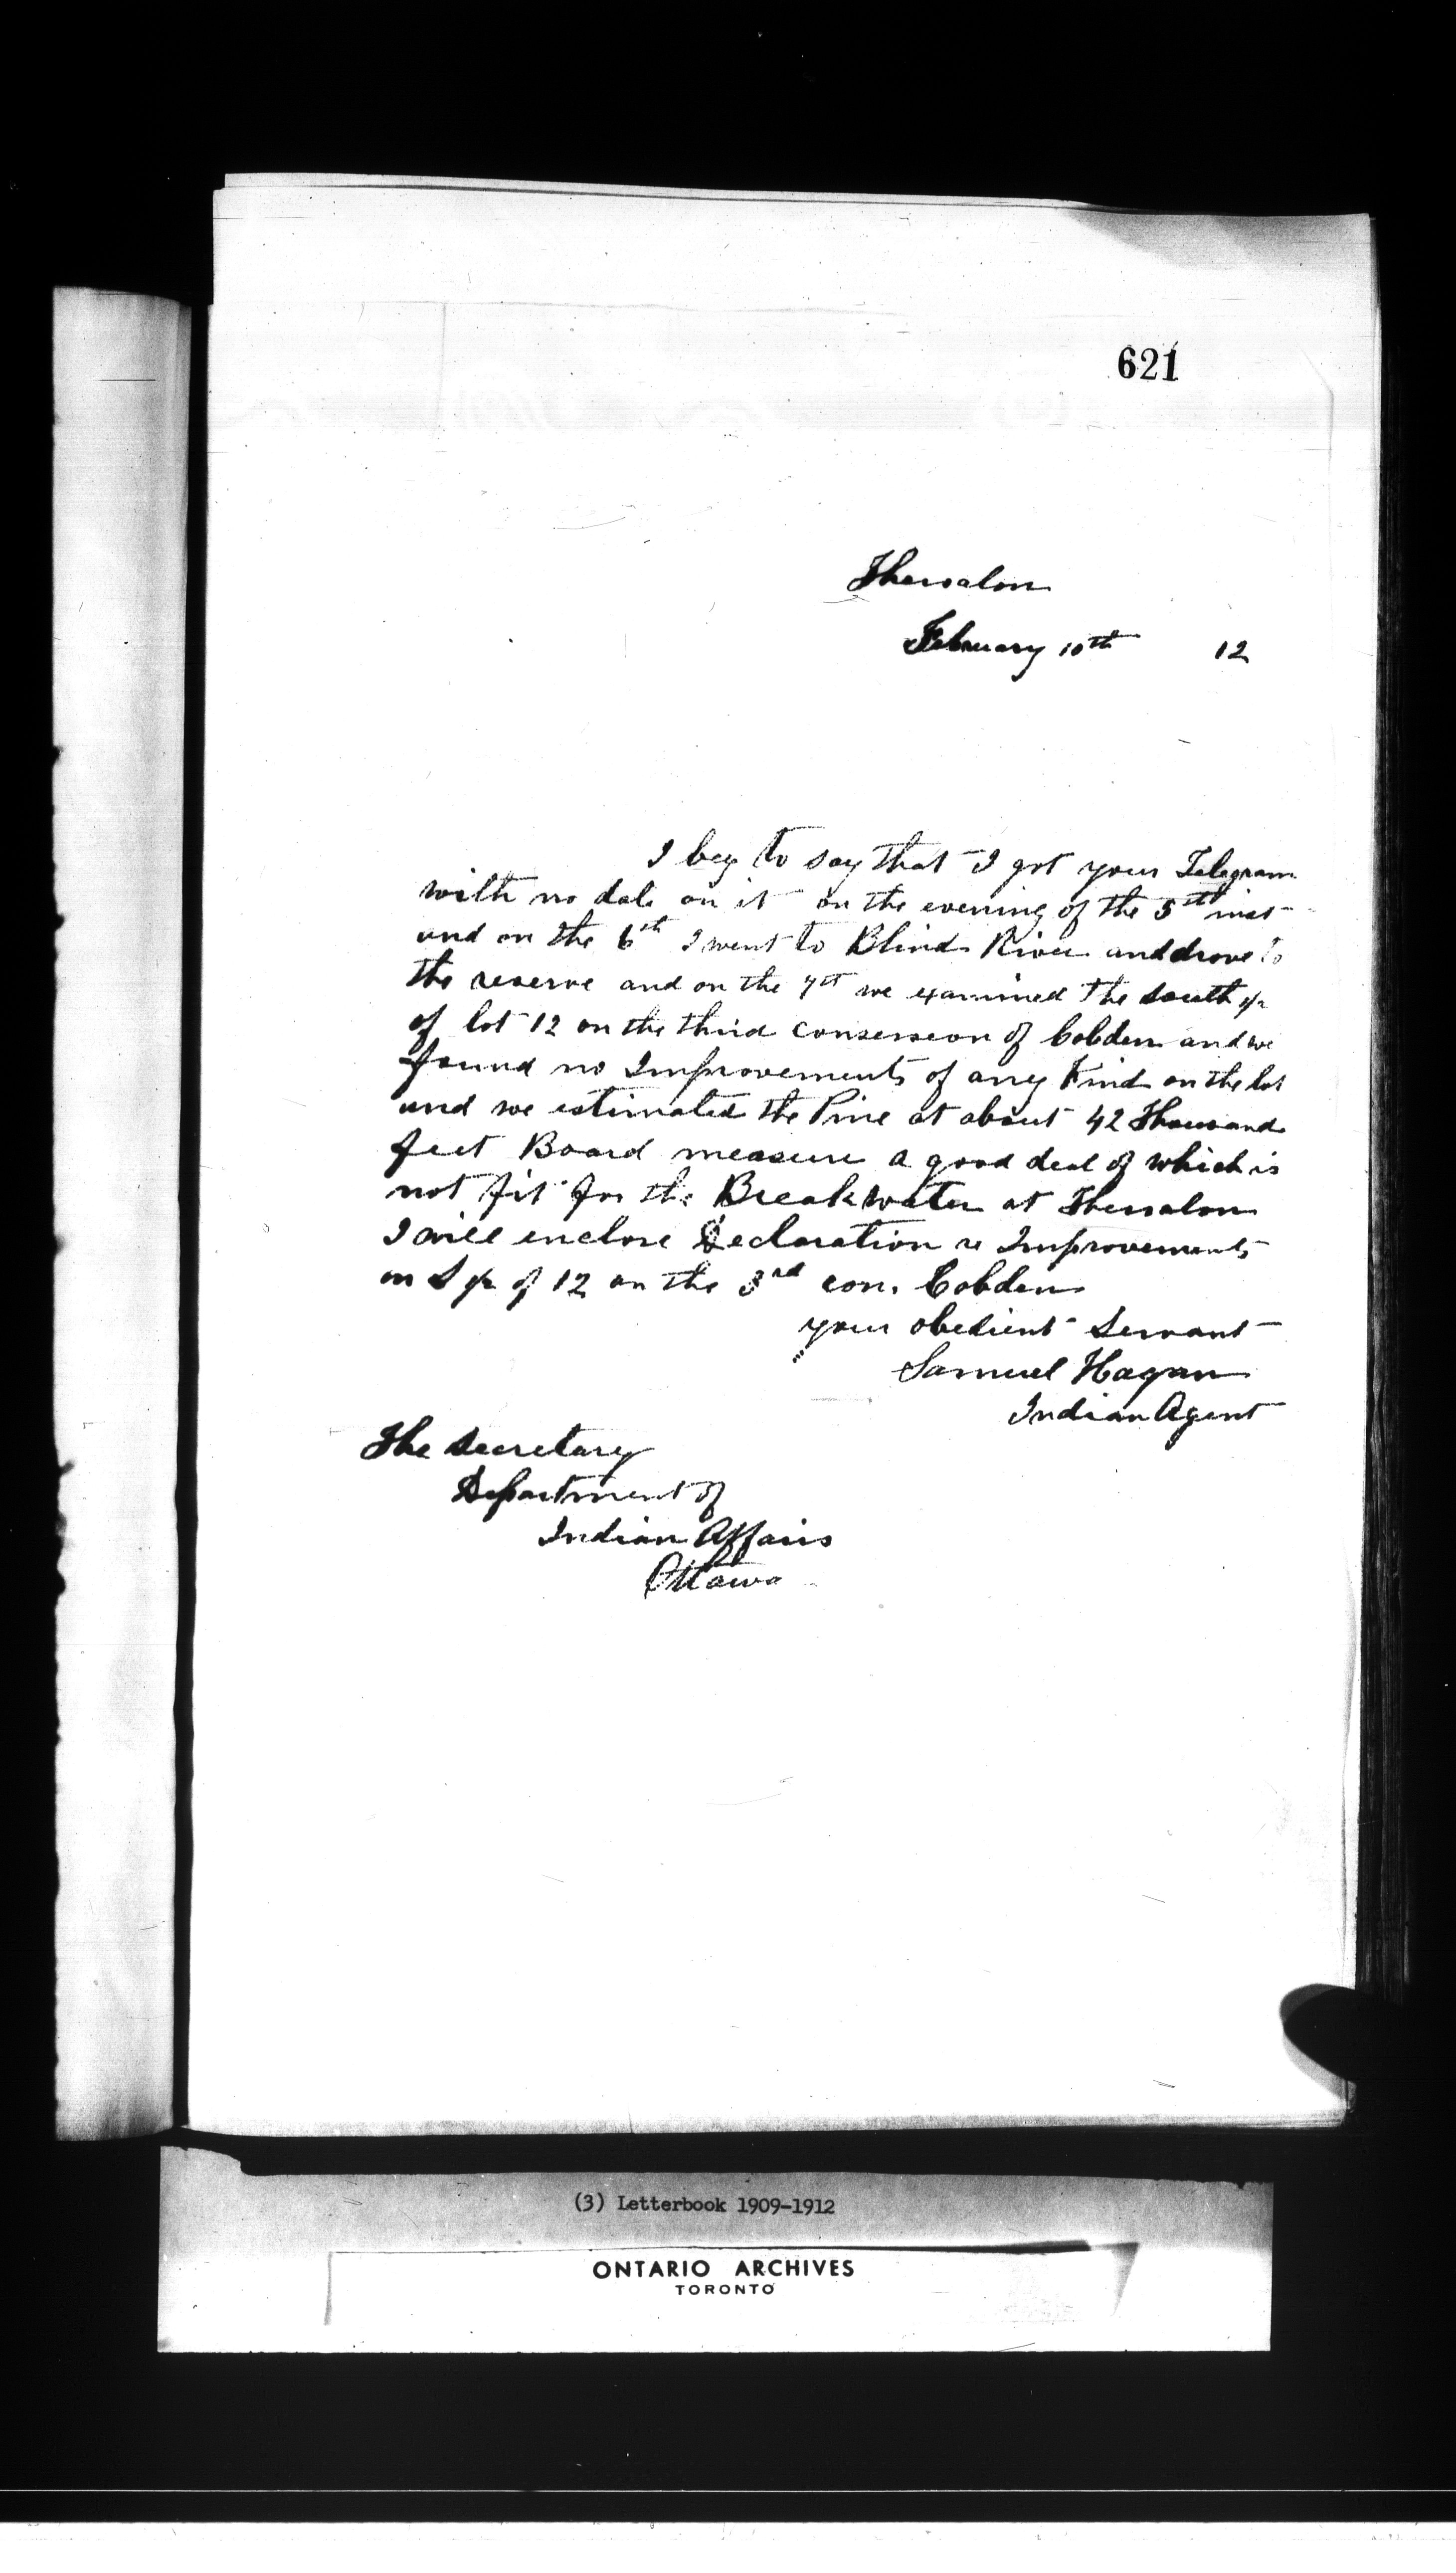 621
Thessalon
February 10th 12
I beg to say that I got your Telegram
with no date on it on the evening of the 5th inst
and on the 6th I went to Blind River and drove to
the reserve and on the 7th we examined the South 1/2
of lot 12 on the third consession of Cobden and we
found no Improvements of any Kind on the lot
and we estimated the Pine at about 42 Thousand
feet Board measure a good deal of which is
not fit for the Breakwater at Thessalon
I will enclose Declaration re Improvements
on S 1/2 of 12 on the 3rd con. Cobden
your obedient Servant
Samuel Hagan
Indian Agent
The Secretary
Department of
Indian Affairs
Ottawa
(3) Letterbook 1909-1912
ONTARIO ARCHIVES
TORONTO